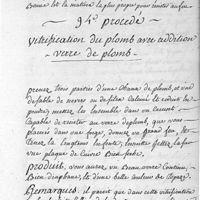 Bonne est la matiere la plus propre pour toutes
94e procedé
vitrification du plomb avec addition
verre de plomb.
prenez trois parties d'une chaux de plomb, et une
de sable de nevers ou silex calciné le reduit en
poudre, mettez le ensemble dans un creuset
Capable de resister au verre de plomb, que vous
placerez dans une forge, donnez un grand feu, et
tenez la longtems en fonte, ensuite jettez la sur
une plaque de cuivre Bien seche.
produit, vous aurez un verre Continu
Bien diaphane, et d'une belle couleur de topaze
Remarques. il parait que dans cette vitrification